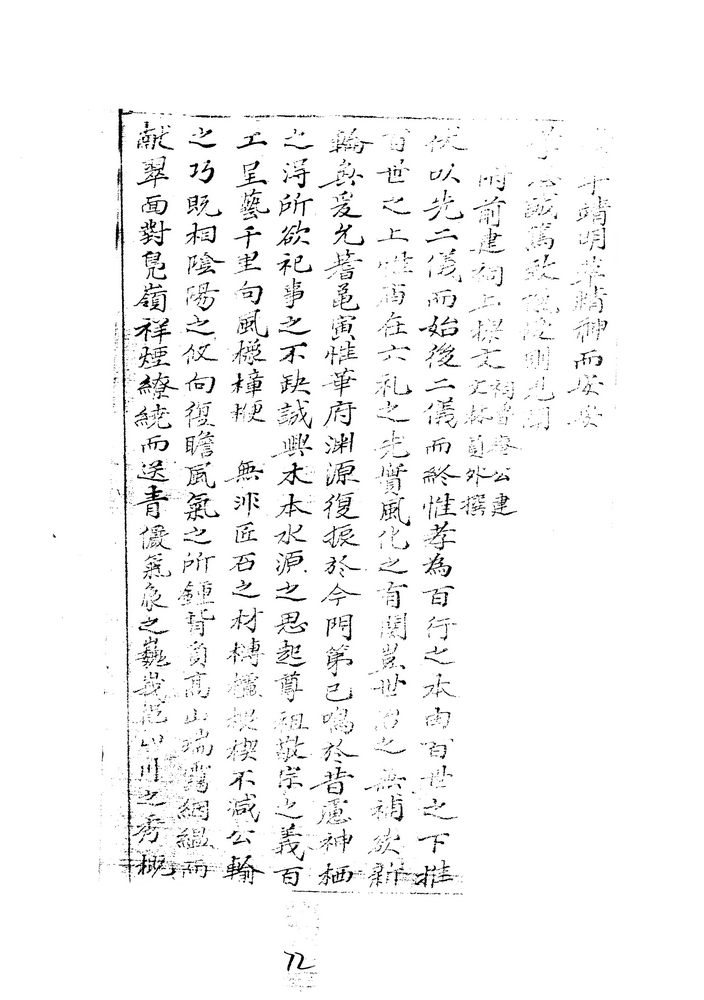 平靖明華精神而安安
誠篤致愾
附前建祠上樑文 祠曾 公建 文林員外撰
伏以先二儀而始後二儀而終惟孝為百行之本由百世之下推
百世之上惟廟在六礼之先實風化之有關豈世治之無補欲新
輪奐爰允蓍黽寅惟華府渊源復振於今門第已鳴於昔慮神栖
之淂所欲祀事之不缺誠興木本水源之思起尊祖敬宗之義百
工呈藝千里向風樑樟楩 無非匠石之材榑櫨根楔不減公輸
之巧既相陰陽之仪向復瞻風氣之所鍾背負髙山瑞靄絪縕而
献翠面對㒵嶺祥煙繚繞而送青優氣象之巍峩挹山川之秀概
72